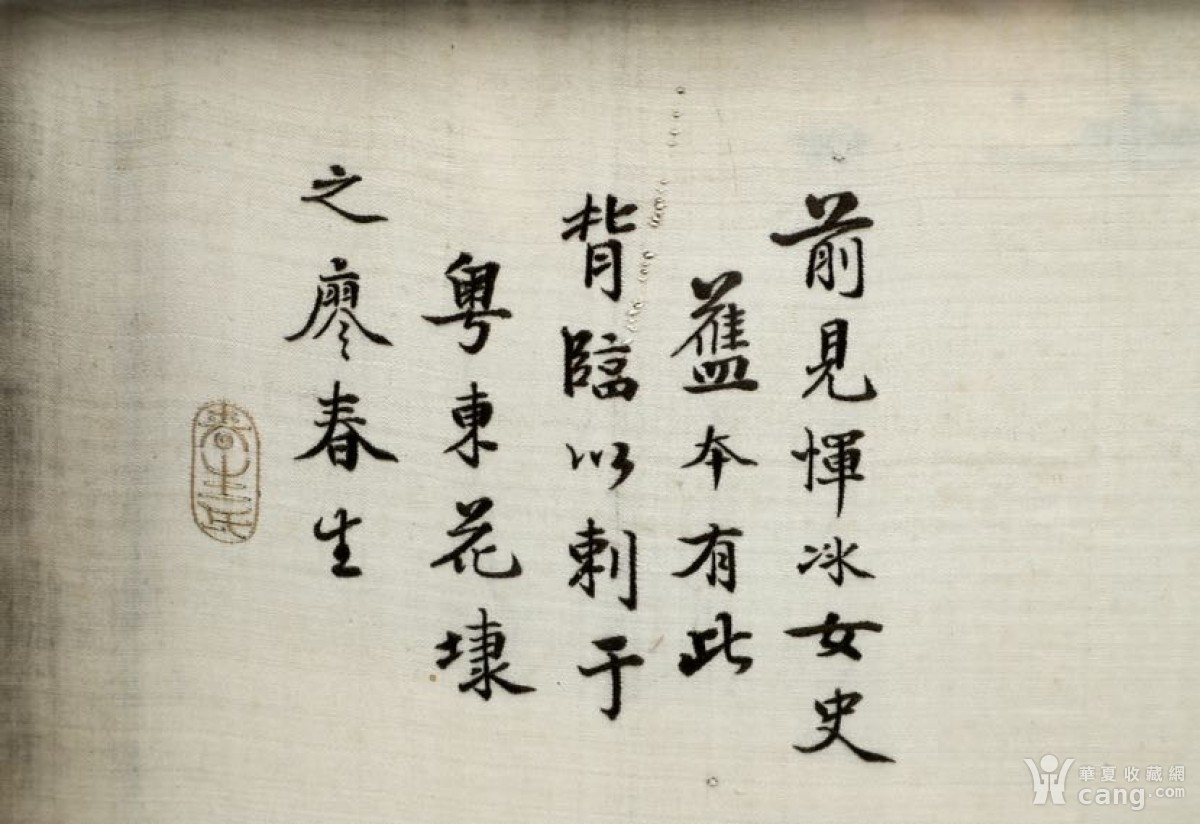 前見惲冰女史
舊本有此
背臨以刺于
粵東花埭
之廖春生
華夏收藏網
cang.com